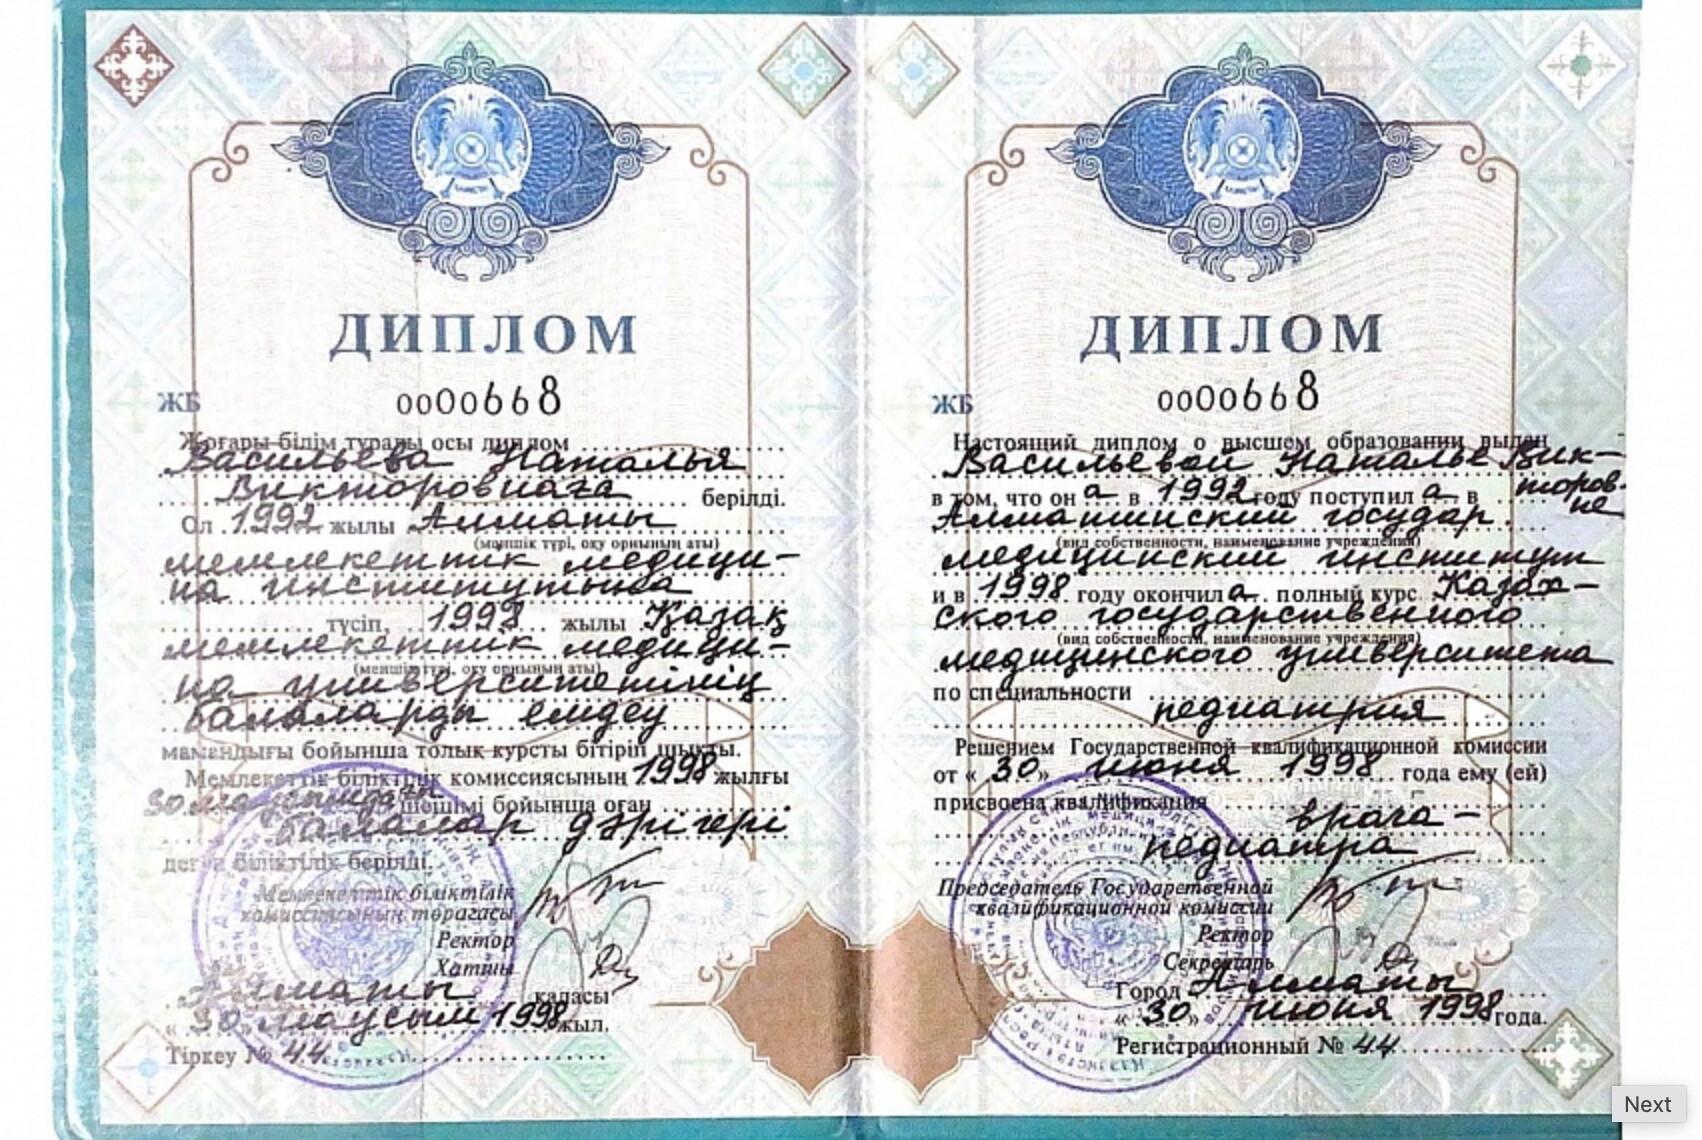 ДИПЛОМ
ЖБ 0000668
Жоғары білім туралы осы диплом
Васильева Наталья
Викторовнаға берілді.
Ол 1992 жылы Алматы
(меншік түрі, оқу орнының аты)
мемлекеттік медици-
на институтына
түсіп, 1998 жылы Қазақ
мемлекеттік медици-
(меншік түрі, оқу орнының аты)
на университетінің
балаларды емдеу
мамандығы бойынша толық курсты бітіріп шықты.
Мемлекеттік біліктілік комиссиясының 1998 жылғы
30 маусымдағы шешімі бойынша оған
балалар дәрігері
деген біліктілік берілді.
Мемлекеттік біліктілік
комиссиясының төрағасы
Ректор
Хатшы
Алматы қаласы
« 30 » маусым 1998 жыл.
Тіркеу № 44
ДИПЛОМ
ЖБ 0000668
Настоящий диплом о высшем образовании выдан
Васильевой Наталье Вик-
торов-
не
в том, что он а в 1992 году поступил а в
Алматинский государ.
(вид собственности, наименование учреждения)
медицинский институт
и в 1998 году окончил а полный курс Казах-
ского государственного
(вид собственности, наименование учреждения)
медицинского университета
по специальности
педиатрия
Решением Государственной квалификационной комиссии
от « 30 » июня 1998 года ему (ей)
присвоена квалификация
врача-
педиатра
Председатель Государственной
квалификационной комиссии
Ректор
Секретарь
Город Алматы
« 30 » июня 1998 года.
Регистрационный № 44
Next